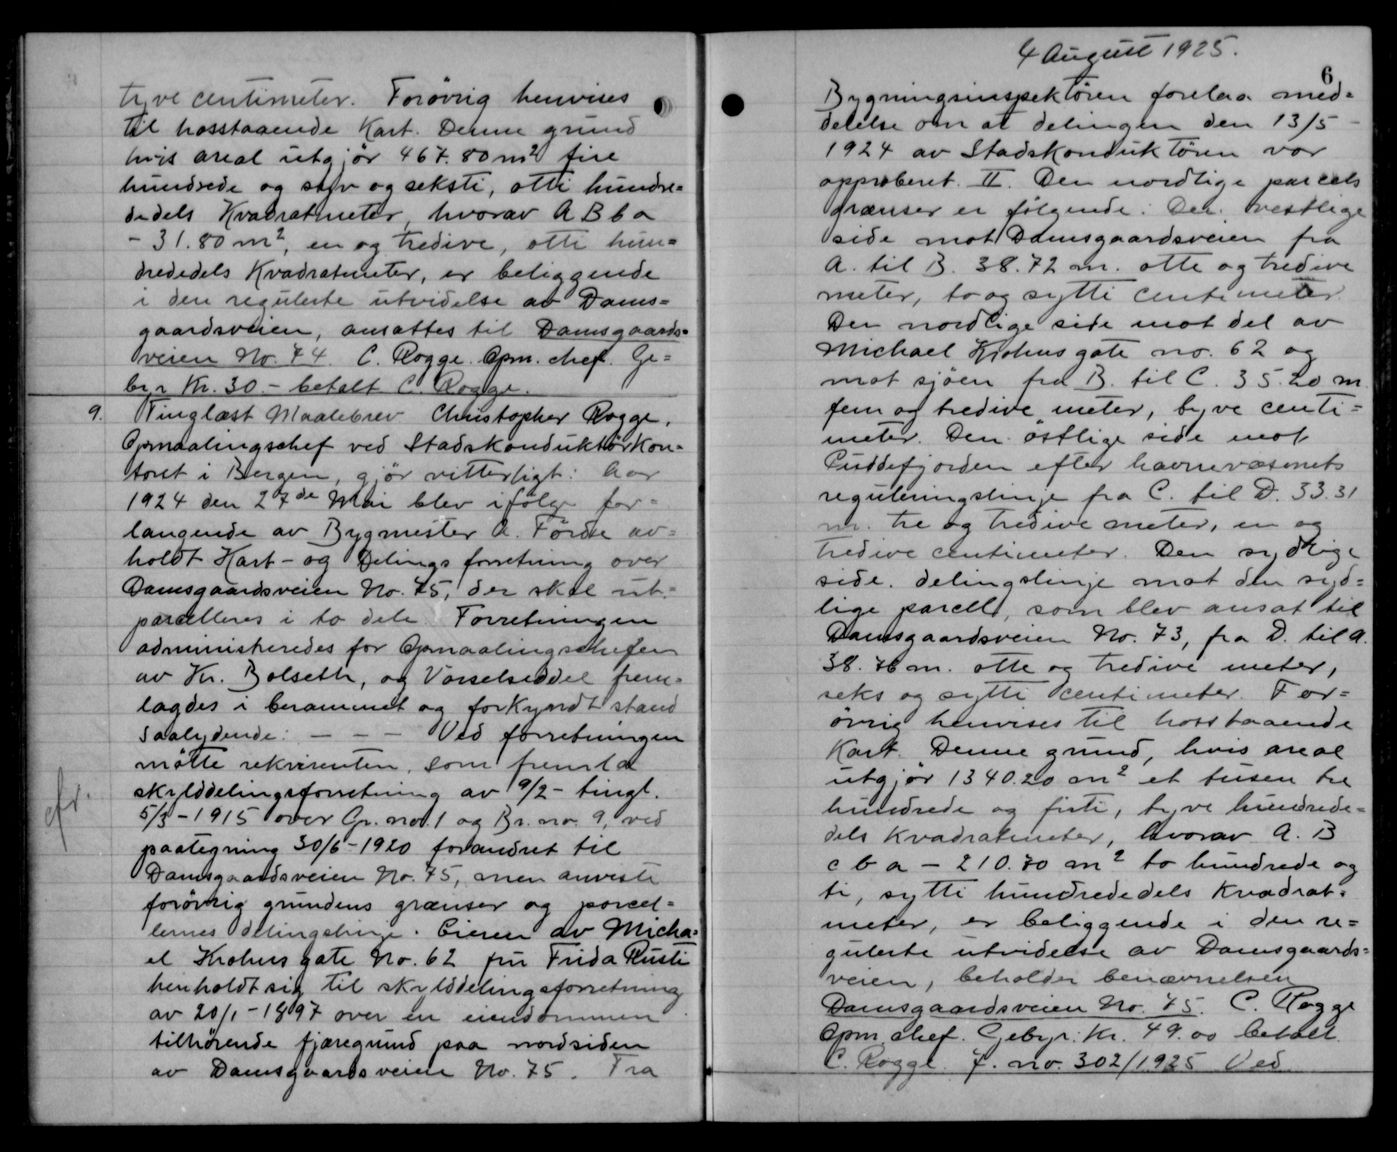 tyve centimeter. Forøvrig henvises
til hosstaaende Kart. Denne grund
hvis areal utgjør 467.80 m² fire
hundrede og syv og seksti, otti hundre=
dedels Kvadratmeter, hvorav A B b a
- 31.80 m², en og tredive, otti hun=
drededels Kvadratmeter, er beliggende
i den regulerte utvidelse av Dams=
gaardsveien, ansattes til Damsgaards=
veien No. 74. C. Rogge. Opm. chef. Ge=
byr Kr. 30.- betalt C. Rogge.
9. Tinglæst Maalebrev Christopher Rogge,
Opmaalingschef ved Stadskonduktørkon=
toret i Bergen, gjør vitterligt: Aar
1924 den 27de Mai blev ifølge for=
langende av Bygmester A. Førde av=
holdt Kart- og Delingsforretning over
Damsgaardsveien No. 75, der skal ut=
parcelleres i to dele. Forretningen
administreredes for Opmaalingschefen
av Kr. Bolseth, og Varselseddel frem=
lagdes i berammet og forkyndt stand
saalydende: - - - Ved forretningen
møtte rekvirenten, som fremla
skylddelingsforretning av 9/2 - tingl.
5/3 - 1915 over Gr. no. 1 og Br. no. 9, ved
cfr.
paategning 30/6 - 1920 forandret til
Damsgaardsveien No. 75, men anviste
forøvrig grundens grænser og parcel=
lernes delingslinje. Eieren av Micha=
el Krohns gate No. 62 fru Frida Rusti
henholdt sig til skylddelingsforretning
av 20/1 - 1897 over en eiendommen
tilhørende fjæregrund paa nordsiden
av Damsgaardsveien No. 75. Fra
4 August 1925.
6
Bygningsinspektøren forelaa med=
delelse om at delingen den 13/5 -
1924 av Stadskonduktøren var
approberet. II. Den nordlige parcels
grænser er følgende: Den vestlige
side mot Damsgaardsveien fra
A. til B. 38.72 m. otte og tredive
meter, to og sytti centimeter.
Den nordlige side mot del av
Michael Krohns gate no. 62 og
mot sjøen fra B. til C. 35.20 m
fem og tredive meter, tyve centi=
meter. Den østlige side mot
Puddefjorden efter havnevæsenets
reguleringslinje fra C. til D. 33.31
m. tre og tredive meter, en og
tredive centimeter. Den sydlige
side. delingslinje mot den syd=
lige parcell, som blev ansat til
Damsgaardsveien No. 73, fra D. til A.
38.76 m. otte og tredive meter,
seks og sytti centimeter. For=
øvrig henvises til hosstaaende
Kart. Denne grund, hvis areal
utgjør 1340.20 m² et tusen tre
hundrede og firti, tyve hundrede=
dels Kvadratmeter, hvorav A. B
c b a - 210.70 m² to hundrede og
ti, sytti hundrededels Kvadrat=
meter, er beliggende i den re=
gulerte utvidelse av Damsgaards=
veien, beholder benævnelsen
Damsgaardsveien No. 75. C. Rogge
Opm. chef. Gebyr: Kr. 49.00 betalt
C. Rogge. J. no. 302/1925 Ved